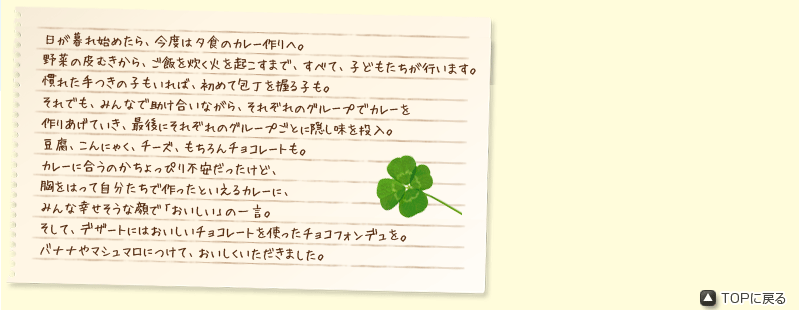 日が暮れ始めたら、今度は夕食のカレー作りへ。
野菜の皮むきから、ご飯を炊く火を起こすまで、すべて、子どもたちが行います。
慣れた手つきの子もいれば、初めて包丁を握る子も。
それでも、みんなで助け合いながら、それぞれのグループでカレーを
作りあげていき、最後にそれぞれのグループごとに隠し味を投入。
豆腐、こんにゃく、チーズ、もちろんチョコレートも。
カレーに合うのかちょっぴり不安だったけど、
胸をはって自分たちで作ったといえるカレーに、
みんな幸せそうな顔で「おいしい」の一言。
そして、デザートにはおいしいチョコレートを使ったチョコフォンデュを。
バナナやマシュマロにつけて、おいしくいただきました。
TOPに戻る